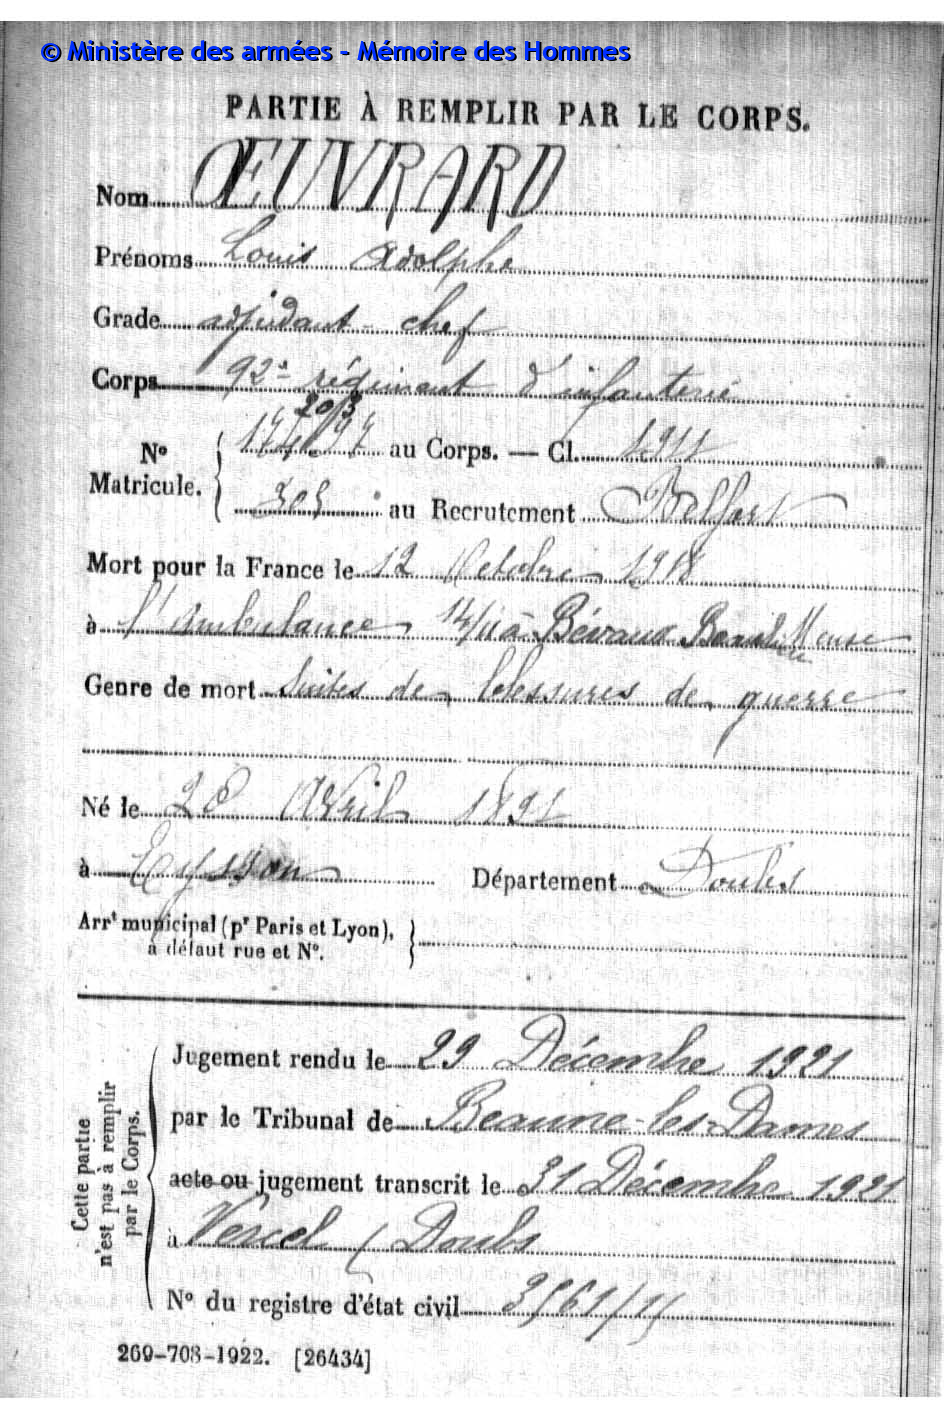 © Ministère des armées - Mémoire des Hommes
PARTIE À REMPLIR PAR LE CORPS.
Nom ŒUVRARD
Prénoms Louis Adolphe
Grade adjudant-chef
Corps 92e régiment d'infanterie
20/3
No Matricule. { 17497 au Corps. — Cl. 1911
305 au Recrutement Belfort
Mort pour la France le 12 Octobre 1918
à l'Ambulance 14/11 à Bévaux Meuse
Genre de mort Suites de blessures de guerre
Né le 28 Avril 1891
à Eysson Département Doubs
Arrt municipal (pr Paris et Lyon),
à défaut rue et No. }
Cette partie
n'est pas à remplir
par le Corps.
Jugement rendu le 29 Décembre 1921
par le Tribunal de Beaume-les-Dames
acte ou jugement transcrit le 31 Décembre 1921
à Vercel (Doubs
No du registre d'état civil
269-708-1922. [26434]